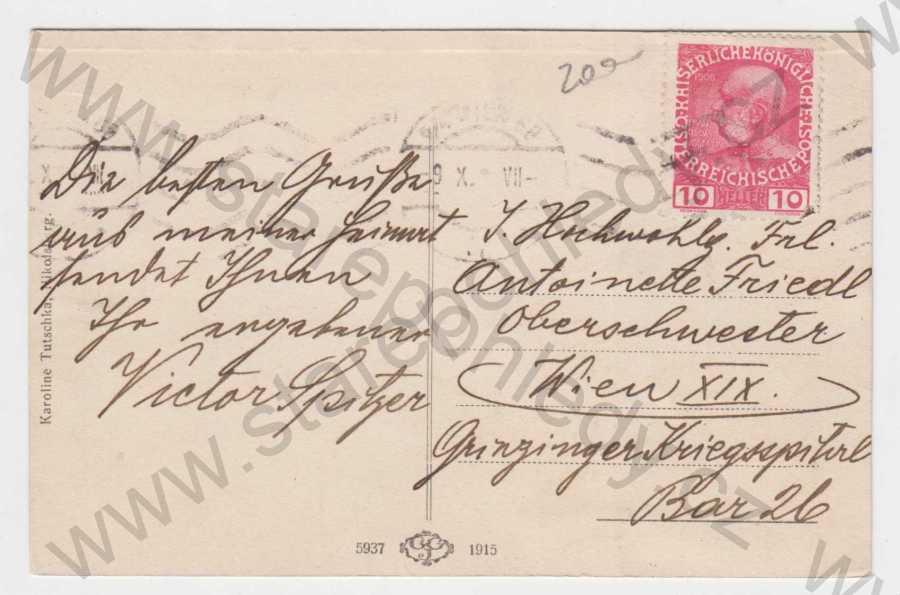 200
KAISERLICHE KÖNIGLICHE
ÖSTERREICHISCHE POST
1908
10 HELLER 10
9 X. VII-
Die besten Grüße
aus meiner Heimat
sendet Ihnen
Ihr ergebener
Victor Spitzer
J. Hochwohlg. Frl.
Antoinette Friedl
Oberschwester
Wien XIX.
Grinzinger Kriegsspital
Bar 26
Karoline Tutschka, Nikolsburg.
5937 1915
www.starepohledy.cz